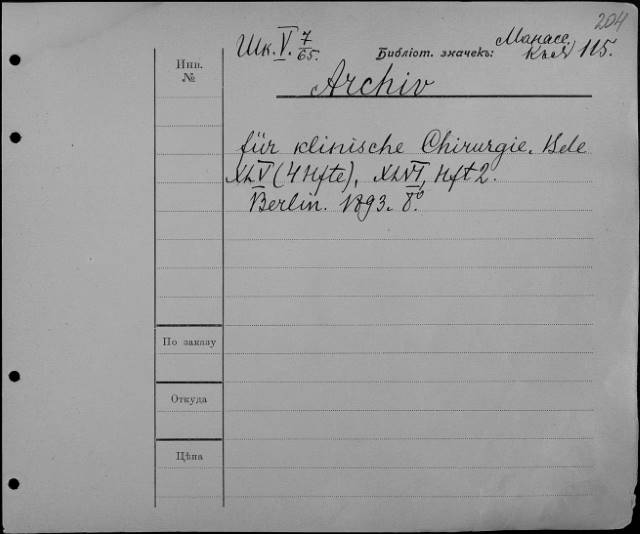 204
Шк. V. 7/65.
Библіот. значекъ: Манасс. 115.
Инв. №
Archiv
für klinische Chirurgie. Bde
XLV (4 Hfte), XLVI, Hft 2.
Berlin. 1893. 8°
По заказу
Откуда
Цѣна